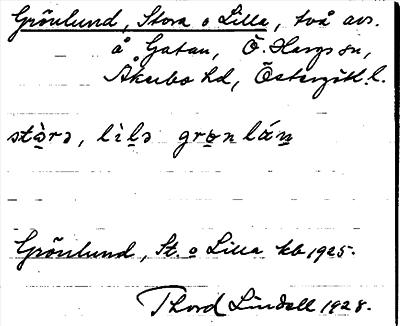 Grönlund, Stora o Lilla, två avs.
å Gatan, Ö. Hargs sn,
Åkerbo hd, Östergötl. l.
stòrə, lìlə grɵnlán
Grönlund, St. o Lilla kb 1925.
Thord Lindell 1928.